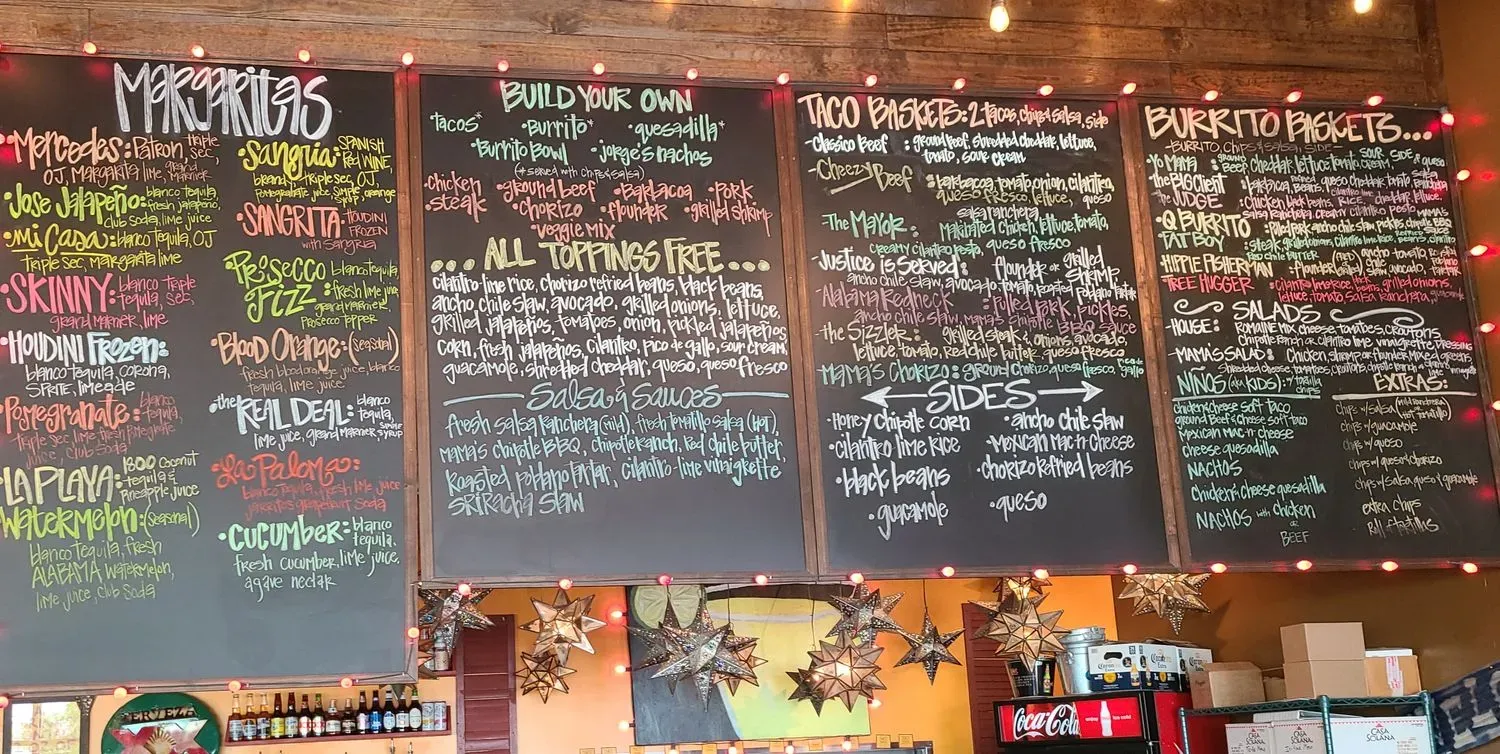 MARGARITAS
• Mercedes: Patron, triple sec,
OJ, Margarita lime, grand marnier
Jose Jalapeño: blanco tequila,
fresh jalapeño,
club soda, lime juice
mi Casa: blanco tequila, OJ
triple sec, margarita lime
• SKINNY: blanco tequila, triple sec,
grand marnier, lime
HOUDINI FROZEN:
blanco tequila, corona,
SPRITE, limeade
• Pomegranate: blanco tequila,
triple sec, lime, fresh pomegranate
juice, club soda
LA PLAYA: 1800 coconut
tequila &
pineapple juice
Watermelon: (seasonal)
blanco tequila, fresh
ALABAMA watermelon,
lime juice, club soda
• Sangria: SPANISH
Red WINE,
brandy, triple sec, OJ,
pomegranate juice, simple, orange
• SANGRITA: HOUDINI
FROZEN
with Sangria
Prosecco Fizz: blanco tequila,
fresh lime juice
grand marnier,
prosecco topper
• Blood Orange: (seasonal)
fresh blood orange juice, blanco
tequila, lime juice
• the REAL DEAL: blanco
tequila,
lime juice, grand marnier, simple syrup
• La Paloma:
blanco tequila, fresh lime juice
jarritos grapefruit soda
• CUCUMBER: blanco
tequila,
fresh cucumber, lime juice,
agave nectar
BUILD YOUR OWN
tacos* • Burrito* • quesadilla*
• Burrito Bowl • jorge's nachos
(* served with chips & salsa)
• chicken • ground beef • Barbacoa • pork
• steak • chorizo • flounder • grilled shrimp
• veggie MIX
... ALL TOPPINGS FREE ....
cilantro lime rice, chorizo refried beans, black beans,
ancho chile slaw, avocado, grilled onions, lettuce,
grilled jalapeños, tomatoes, onion, pickled jalapeños,
corn, fresh jalapeños, cilantro, pico de gallo, sour cream,
guacamole, shredded cheddar, queso, queso fresco
Salsa & Sauces
fresh salsa ranchera (mild), fresh tomatillo salsa (hot),
mama's chipotle BBQ, chipotle ranch, red chile butter,
Roasted poblano tartar, cilantro lime vinaigrette
sriracha slaw
TACO BASKETS: 2 tacos, chips & salsa, side
- Classico Beef : ground beef, shredded cheddar, lettuce,
tomato, sour cream
- Cheezy Beef : barbacoa, tomato, onion, cilantro,
queso fresco, lettuce, queso
salsa ranchera
The Mayor: Marinated chicken, lettuce, tomato,
creamy cilantro pesto, queso fresco
- Justice is Served: flounder or grilled shrimp,
ancho chile slaw, avocado, tomato, roasted poblano tartar
Alabama Redneck : Pulled pork, pickles,
ancho chile slaw, mama's chipotle BBQ sauce
- the Sizzler: grilled steak & onions, avocado,
lettuce, tomato, red chile butter, queso fresco
Mama's Chorizo: ground chorizo, queso fresco, pico de gallo
SIDES
• Honey Chipotle corn • ancho chile slaw
• cilantro lime rice • Mexican mac-n-cheese
• black beans • chorizo refried beans
• guacamole • queso
BURRITO BASKETS...
- BURRITO, CHIPS & salsa, SIDE -
Yo MAMA : ground beef, cheddar, lettuce, tomato, sour cream,
the BIG Client
the JUDGE : Chicken, black beans, RICE, cheddar, lettuce,
salsa ranchera, creamy cilantro pesto
Q BURRITO : Pulled pork, ancho chile slaw, pickles, MAMA'S BBQ
FAT BOY : steak, grilled onions, cilantro lime rice, refried beans, cilantro
red chile butter
HIPPIE FISHERMAN - flounder
TREE HUGGER : cilantro lime rice, black beans, grilled onions,
lettuce, tomato, salsa ranchera,
SALADS
- HOUSE: Romaine mix, cheese, tomatoes, croutons,
chipotle ranch or cilantro lime vinaigrette dressing
- MAMA'S SALAD: Chicken, shrimp or flounder, mixed greens,
NIÑOS (aka KIDS): + tortilla chips
chicken & cheese soft taco
ground Beef & Cheese soft taco
Mexican mac-n-cheese
cheese quesadilla
NACHOS
Chicken & cheese quesadilla
NACHOS with chicken
or
BEEF
EXTRAS:
chips w/ salsa
chips w/ guacamole
chips w/ queso
chips w/ queso & chorizo
chips w/ salsa queso & guacamole
extra chips
CERVEZA
Coca-Cola
enjoy
CASA SOLANA
CASA SOLANA